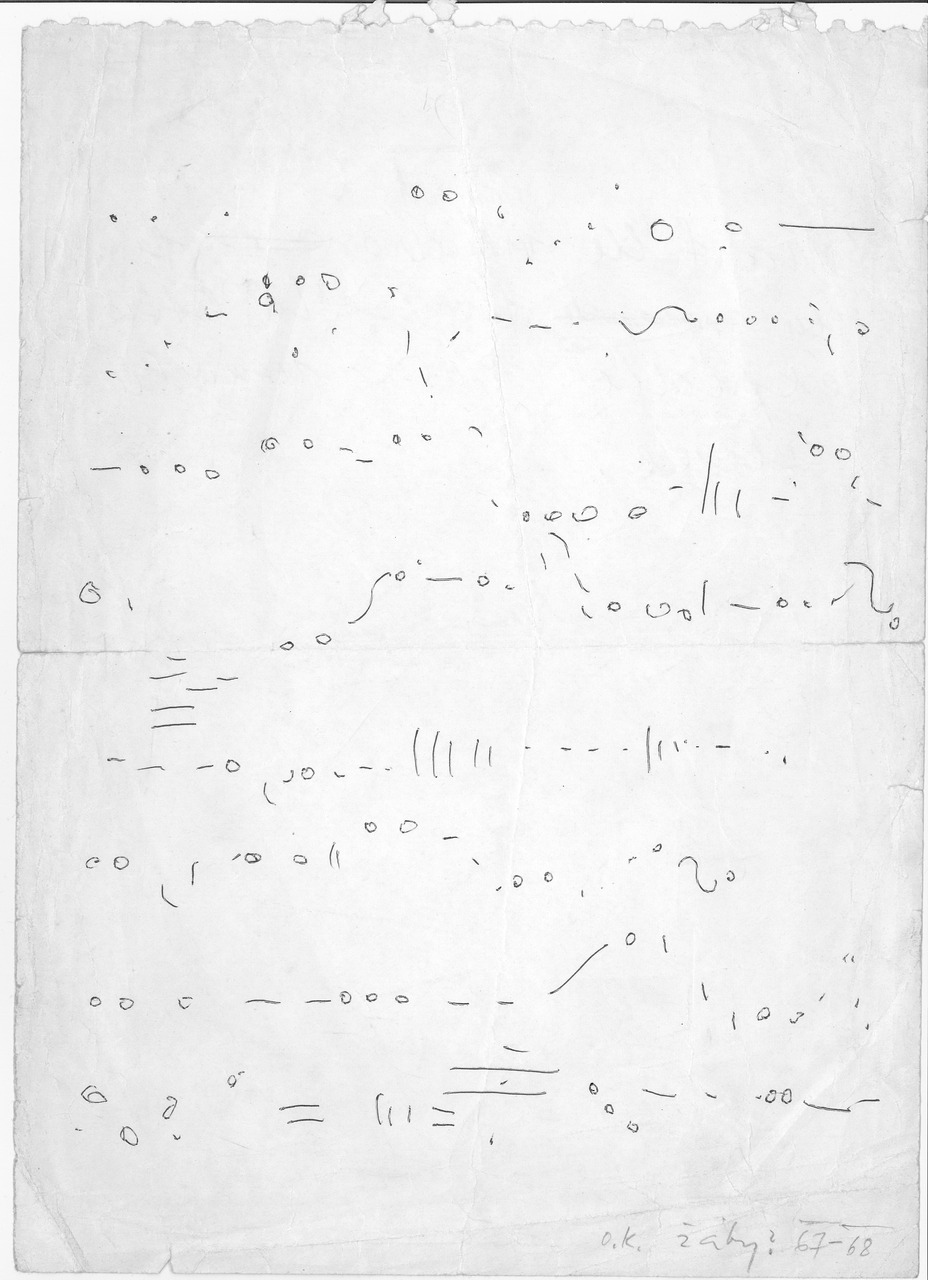 o.k. žáby? 67-68